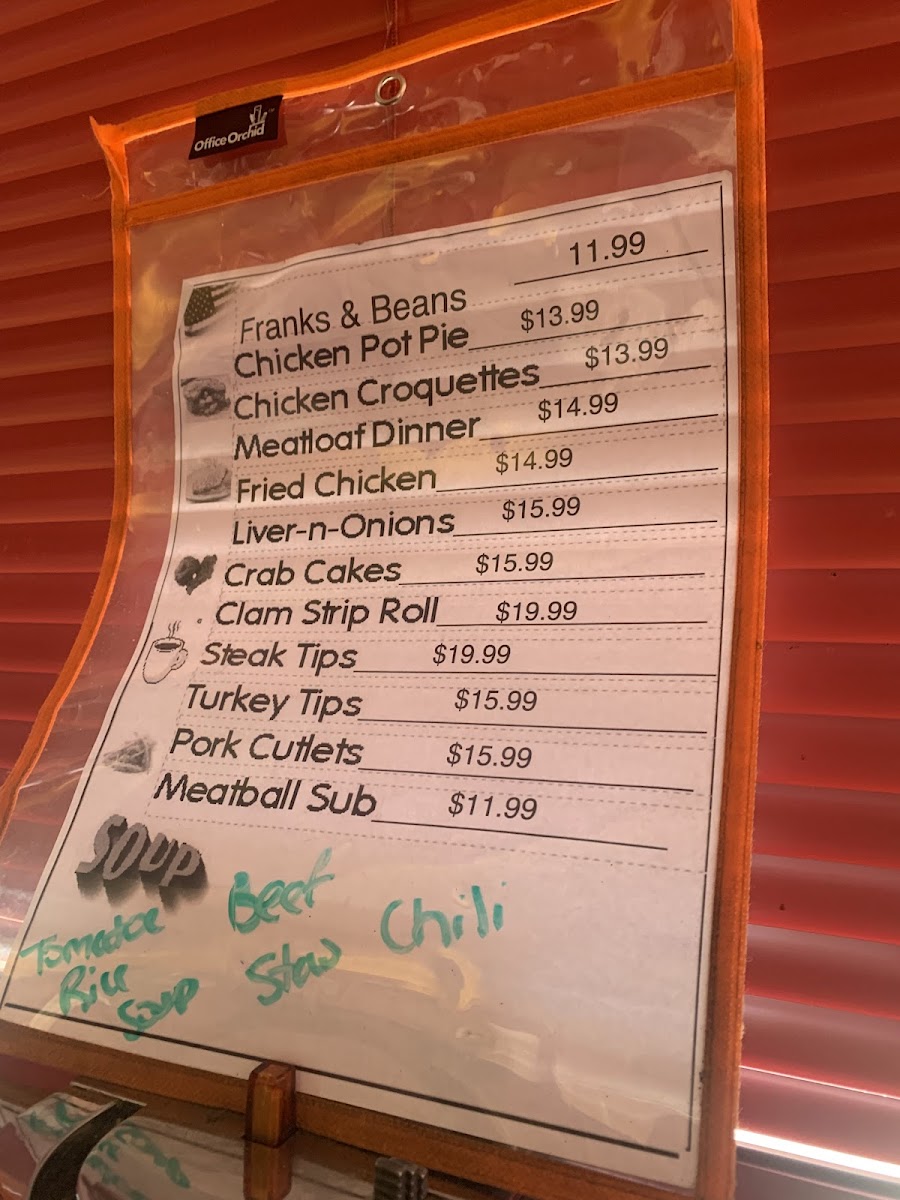 OfficeOrchid™
Franks & Beans 11.99
Chicken Pot Pie $13.99
Chicken Croquettes $13.99
Meatloaf Dinner $14.99
Fried Chicken $14.99
Liver-n-Onions $15.99
Crab Cakes $15.99
Clam Strip Roll $19.99
Steak Tips $19.99
Turkey Tips $15.99
Pork Cutlets $15.99
Meatball Sub $11.99
SOUP
Tomatoe
Rice
Soup
Beef
Stew
Chili